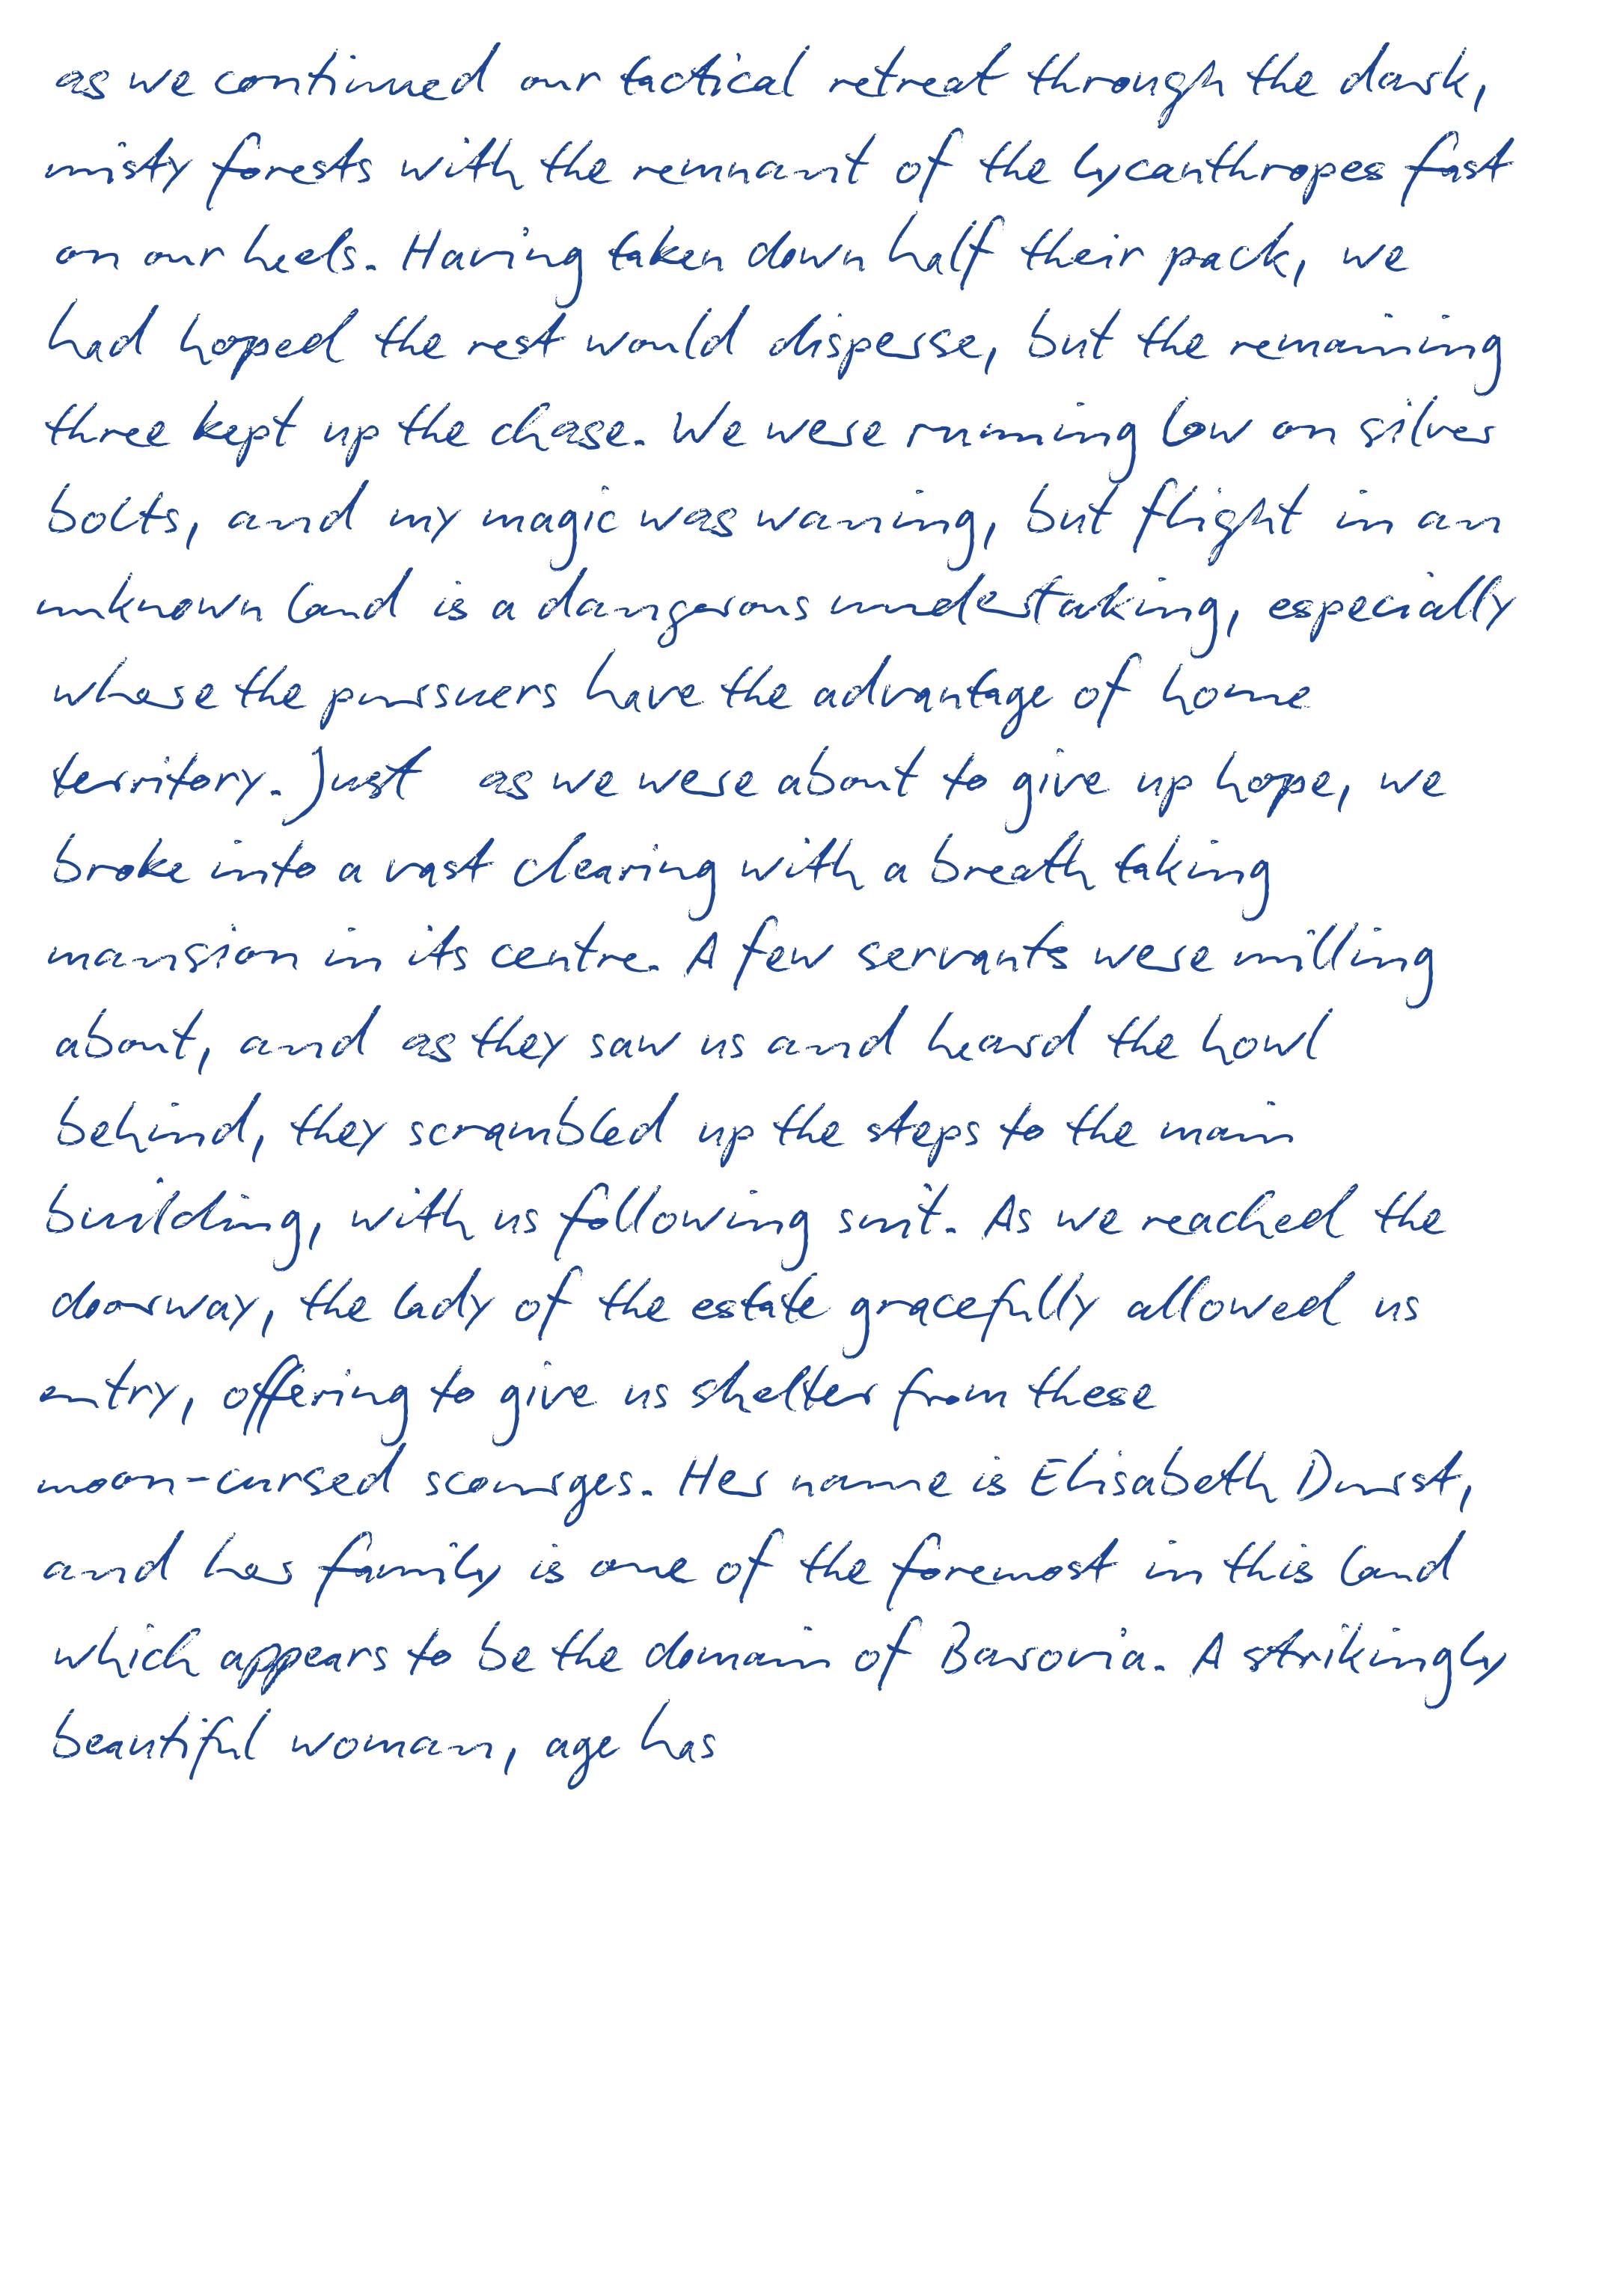 as we continued our tactical retreat through the dark,
misty forests with the remnant of the lycanthropes fast
on our heels. Having taken down half their pack, we
had hoped the rest would disperse, but the remaining
three kept up the chase. We were running low on silver
bolts, and my magic was waning, but flight in an
unknown land is a dangerous undertaking, especially
where the pursuers have the advantage of home
territory. Just as we were about to give up hope, we
broke into a vast clearing with a breath taking
mansion in its centre. A few servants were milling
about, and as they saw us and heard the howl
behind, they scrambled up the steps to the main
building, with us following suit. As we reached the
doorway, the lady of the estate gracefully allowed us
entry, offering to give us shelter from these
moon-cursed scourges. Her name is Elisabeth Durst,
and her family is one of the foremost in this land
which appears to be the domain of Barovia. A strikingly
beautiful woman, age has